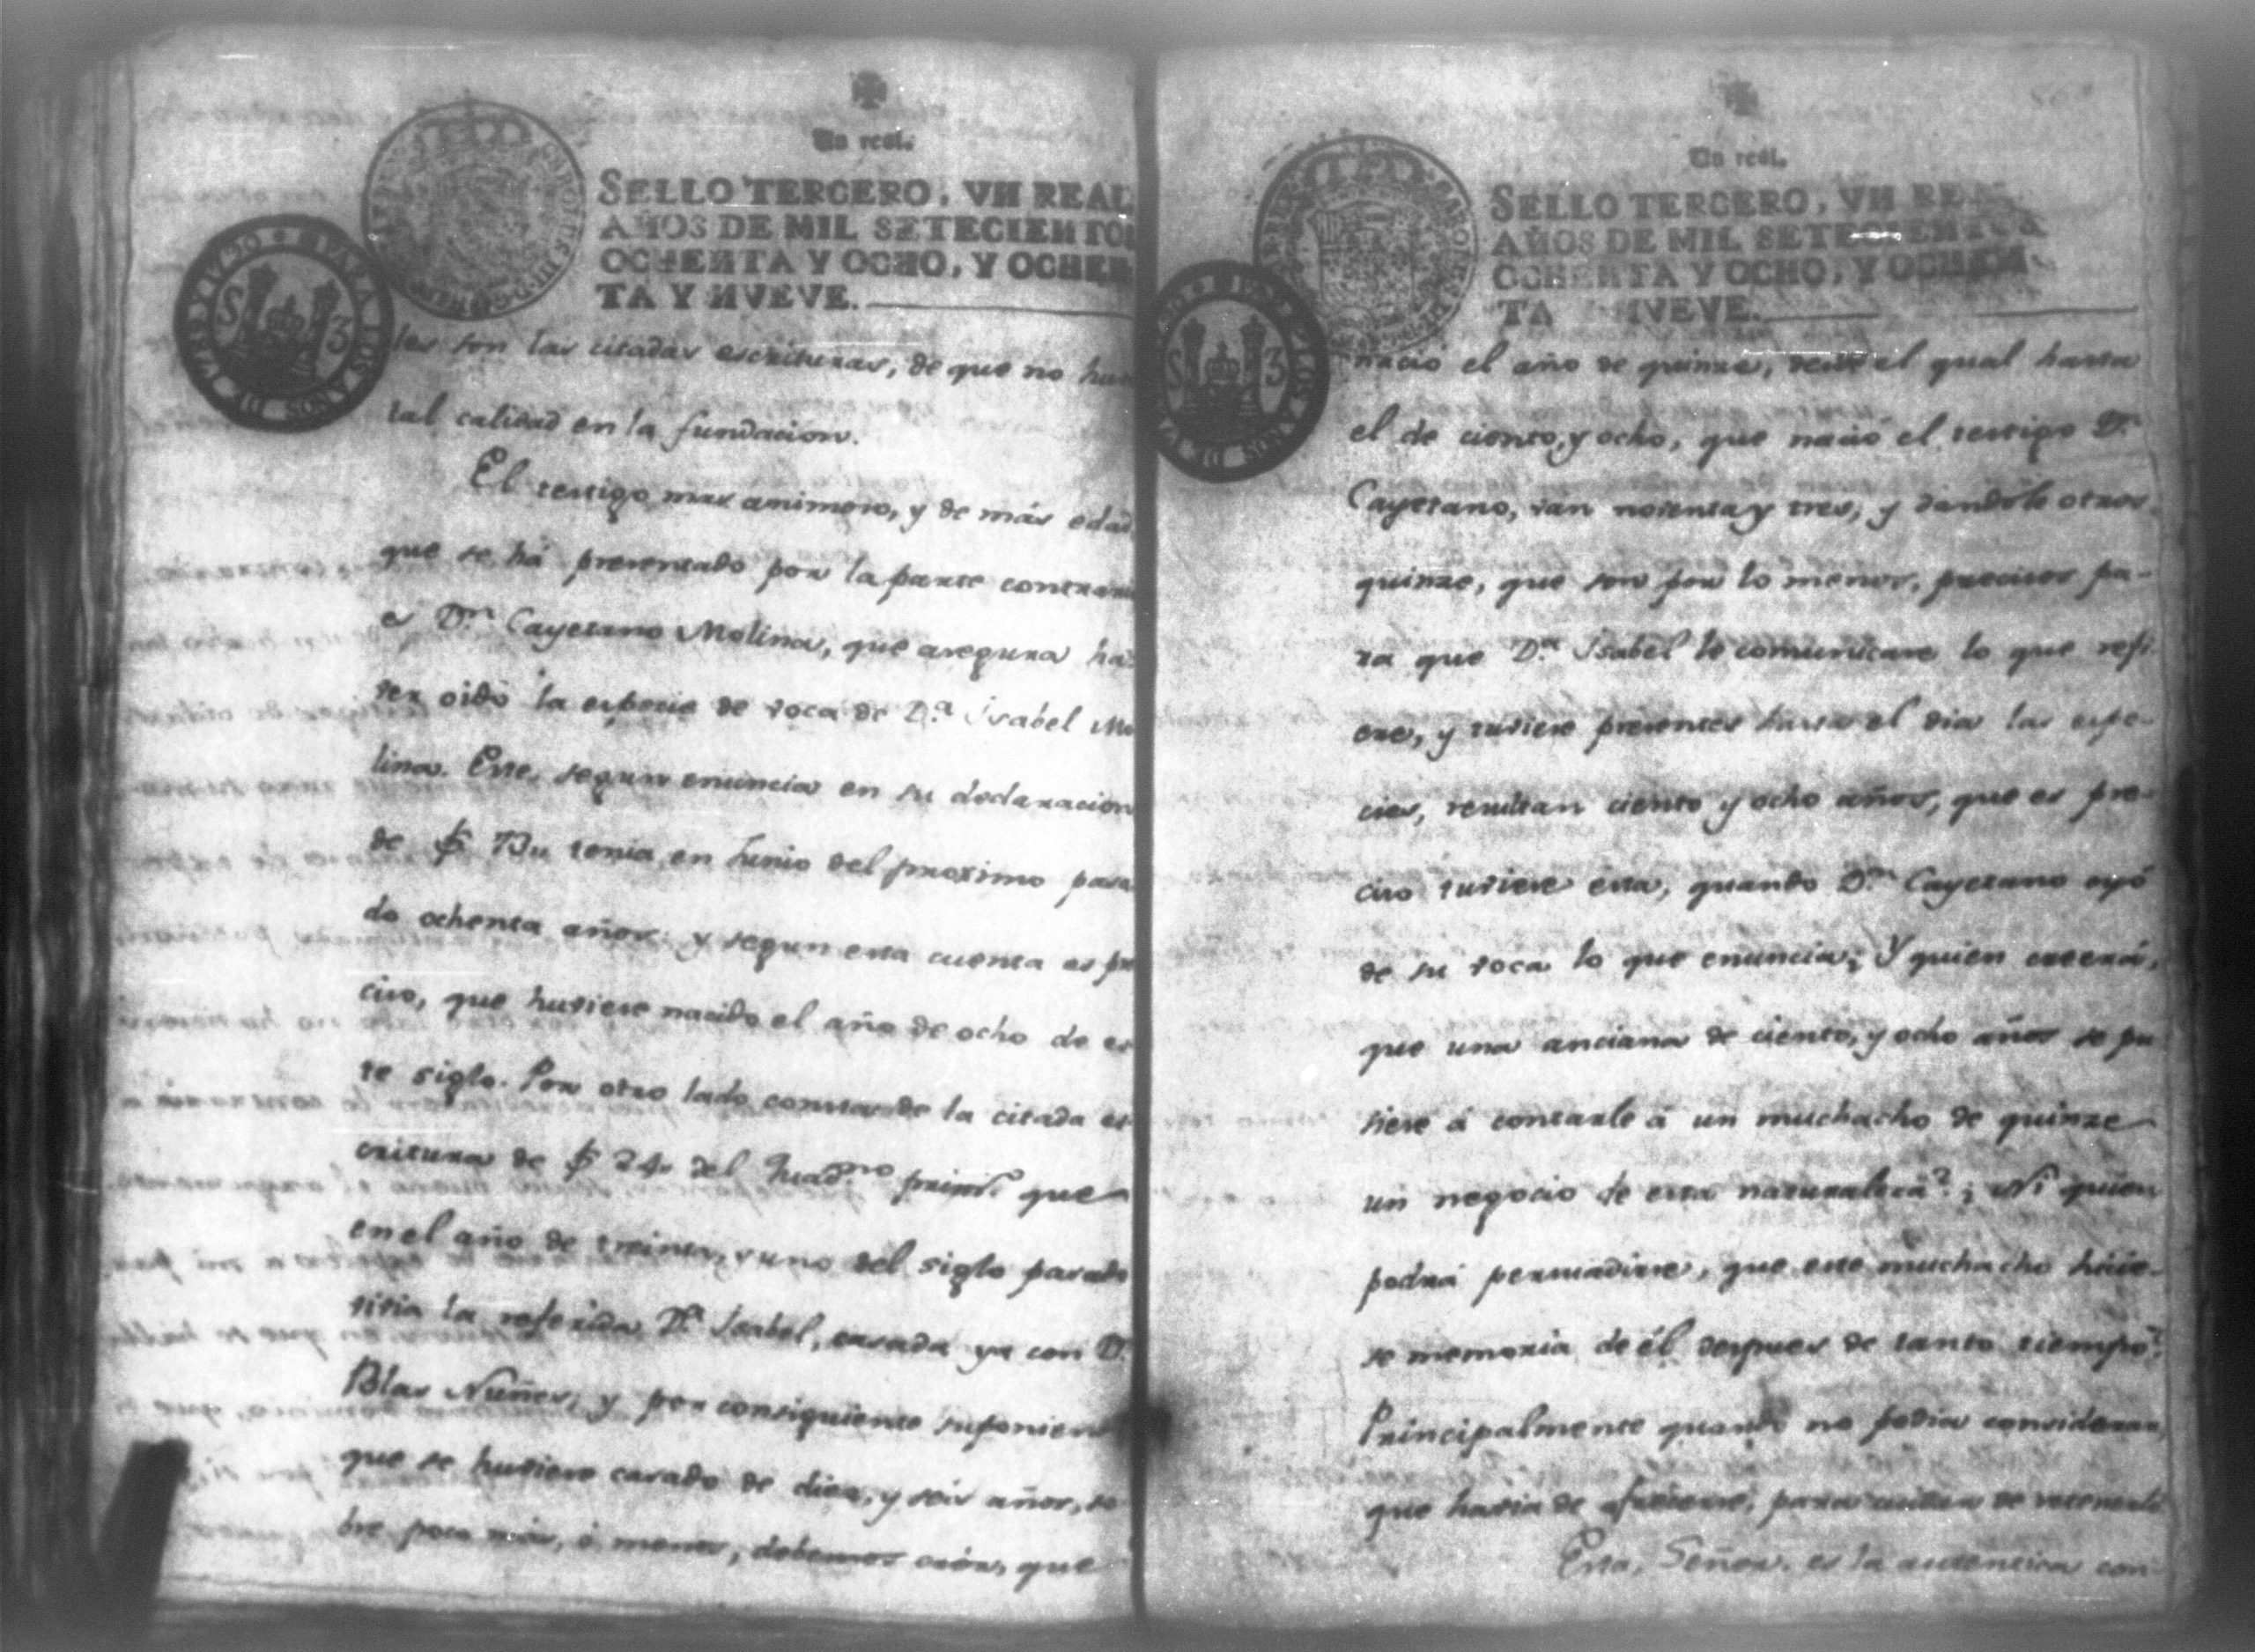 Un real.
SELLO TERCERO, VN REAL
AÑOS DE MIL SETECIENTOS
OCHENTA Y OCHO, Y OCHEN
TA Y NUEVE.
PARA LOS AÑOS DE 1790 Y 91
S 3
les son las citadas escrituras, de que no huv
tal calidad en la fundacion.
El testigo mas animoso, y de más edad
que se há presentado por la parte contrari
es Dn. Cayetano Molina, que asegura ha-
ver oido la especie de voca de Da. Isabel Mo
lina. Este, segun enuncia en su declaracion
de f 73u tenia en Junio del proximo pasa
do ochenta años: y segun esta cuenta es pre
ciso, que huviese nacido el año de ocho de es
te siglo. Por otro lado consta de la citada es
critura de f 24 del Quadno. primo. que
en el año de treinta, y uno del siglo pasado
vivia la referida Da. Isabel, casada ya con D.
Blas Nuñes; y por consiguiente suponien
que se huviese casado de diez, y seis años, so
bre poco más, ó menos, debemos creér, que
Un real.
SELLO TERCERO, VN REA
AÑOS DE MIL SETECIENTOS
OCHENTA Y OCHO, Y OCHEN
TA NUEVE.
S 3
nació el año de quinze, desde el qual hasta
el de ciento, y ocho, que nació el testigo Dn.
Cayetano, van noventa y tres; y dandole otros
quinze, que son por lo menos, precisos pa-
ra que Da. Isabel le comunicase lo que refi-
ere, y tuviese presentes hasta el dia las espe-
cies, resultan ciento y ocho años, que es pre-
ciso tuviese esta, quando Dn. Cayetano oyó
de su voca lo que enuncia; Y quien creerá,
que una anciana de ciento, y ocho años se pu
siese á contarle á un muchacho de quinze
un negocio de esta naturaleza? ¿Ni quien
podrá persuadirse, que este muchacho hicie-
se memoria de él despues de tanto tiempo?
Principalmente quando no podia considerar,
que havia de ofrecerse, para cuidar de retenerle
Esta, Señor, es la autentica con-